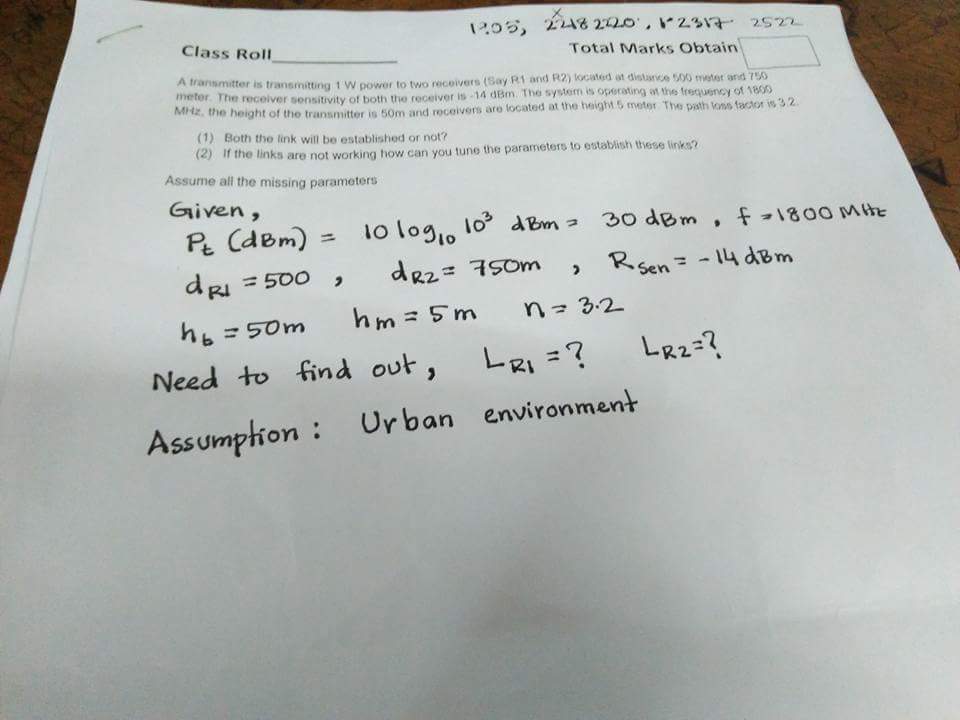 2522
Class Roll
Total Marks Obtain
A transmitter is transmitting 1 W power to two receivers (Say R1 and R2) located at distance 500 meter and 750
meter. The receiver sensitivity of both the receiver is -14 dBm. The system is operating at the frequency of 1800
MHz, the height of the transmitter is 50m and receivers are located at the height 5 meter. The path loss factor is 3.2.
(1) Both the link will be established or not?
(2) If the links are not working how can you tune the parameters to establish these links?
Assume all the missing parameters
Given,
Pt (dBm) = 10 log10 10³ dBm = 30 dBm, f = 1800 MHz
dR1 = 500, dR2 = 750m, RSen = -14 dBm
hb = 50m hm = 5m n = 3.2
Need to find out, LR1 = ? LR2 = ?
Assumption: Urban environment